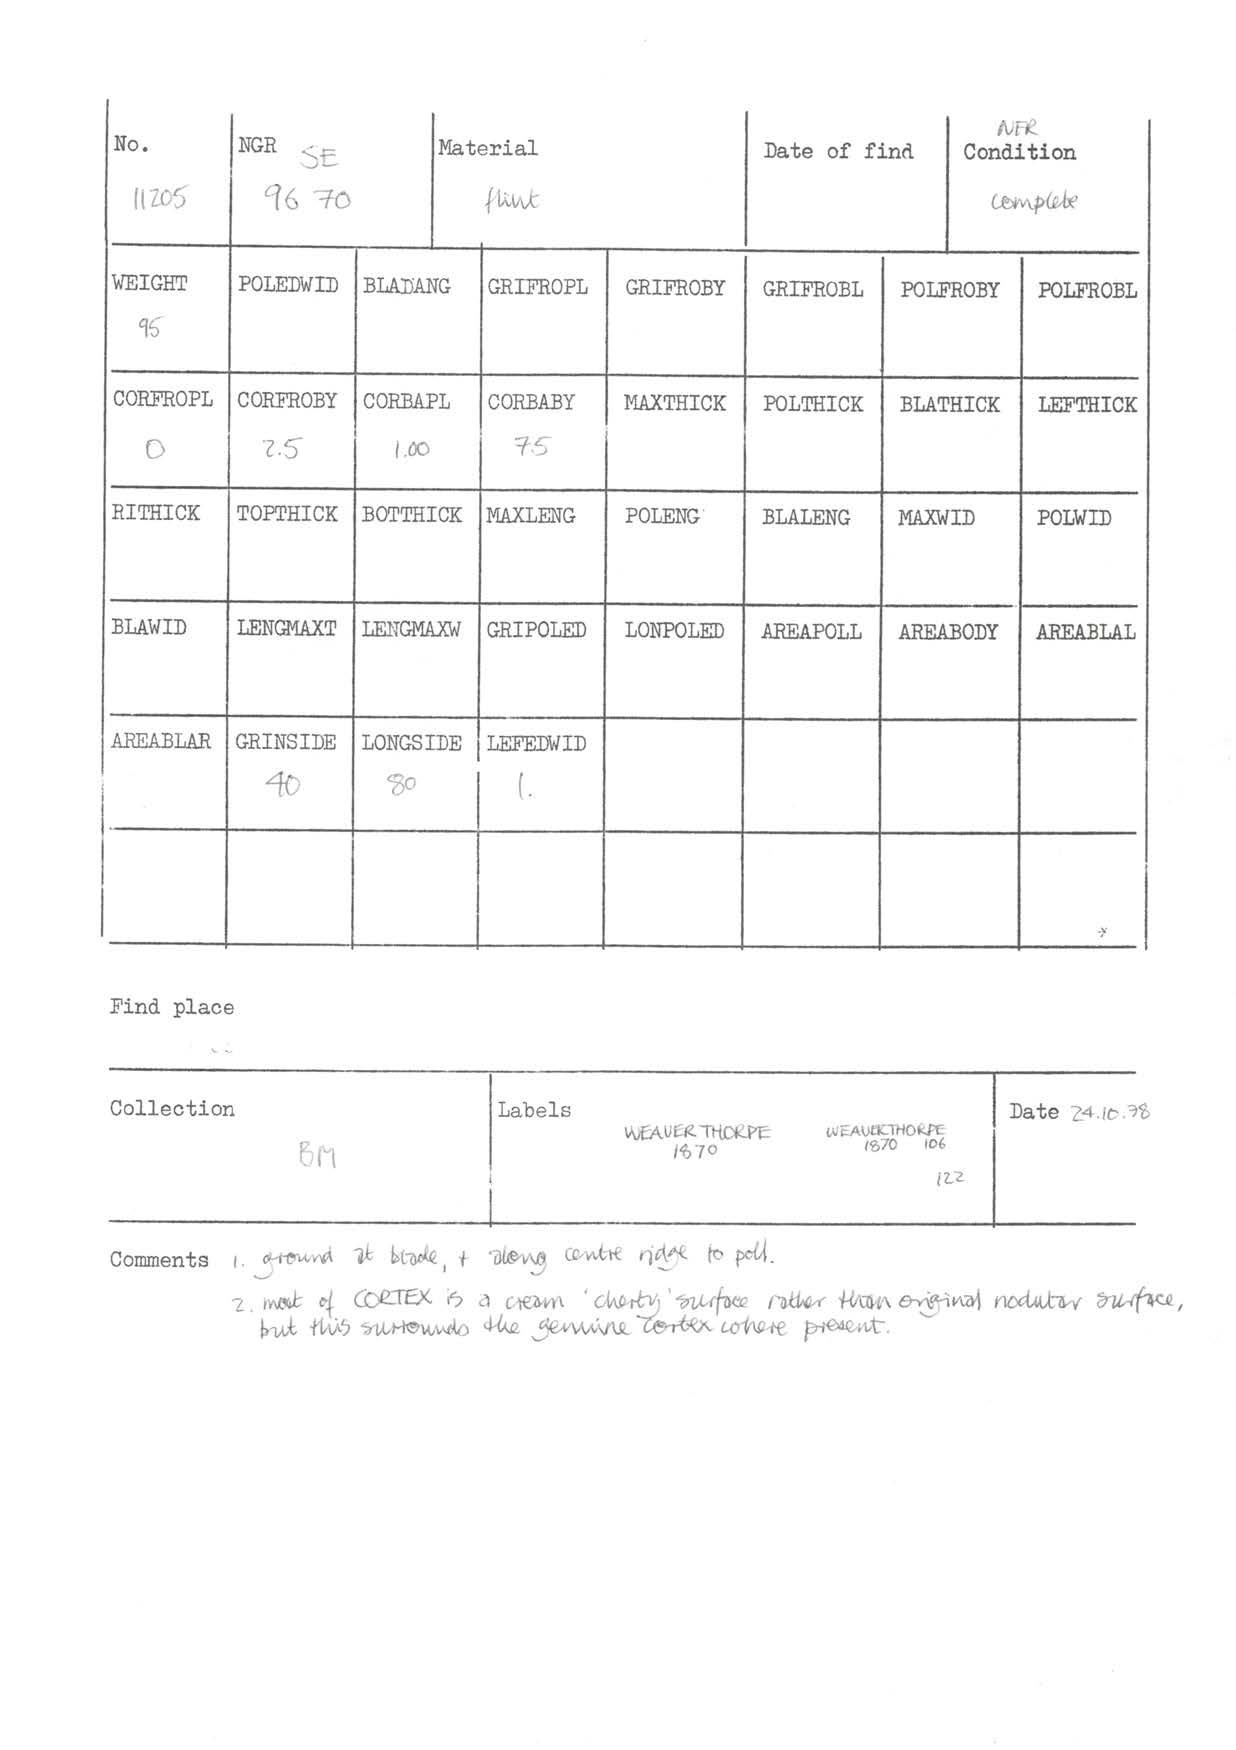 No. NGR SE Material Date of find NFR Condition
11205 96 70 flint complete
WEIGHT POLEDWID BLADANG GRIFROPL GRIFROBY GRIFROBL POLFROBY POLFROBL
95
CORFROPL CORFROBY CORBAPL CORBABY MAXTHICK POLTHICK BLATHICK LEFTHICK
0 2.5 1.00 75
RITHICK TOPTHICK BOTTHICK MAXLENG POLENG BLALENG MAXWID POLWID
BLAWID LENGMAXT LENGMAXW GRIPOLED LONPOLED AREAPOLL AREABODY AREABLAL
AREABLAR GRINSIDE LONGSIDE LEFEDWID
40 80 1.
Find place
Collection Labels Date 24.10.78
BM WEAVERTHORPE WEAVERTHORPE
1870 1870 106
122
Comments 1. ground at blade, + along centre ridge to poll.
2. most of CORTEX is a cream 'cherty' surface rather than original nodular surface,
but this surrounds the genuine cortex where present.